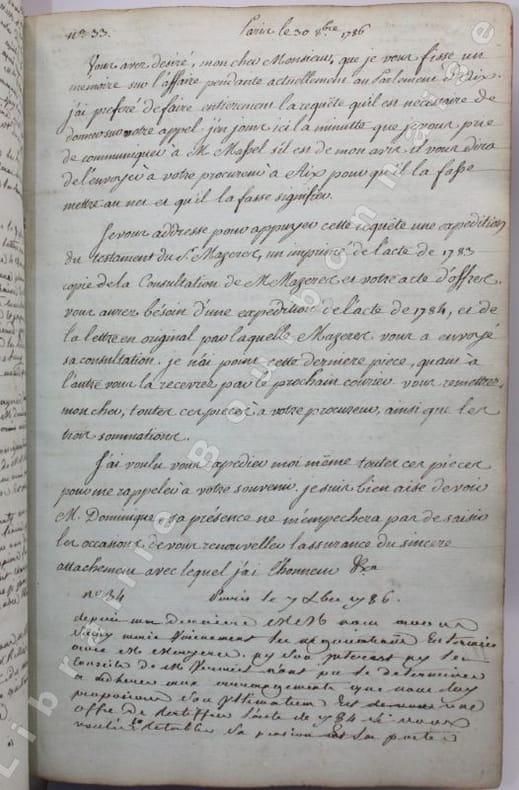 n.o 33.
Paris le 30 8bre 1786
Vous avez desiré, mon cher Monsieur, que je vous fisse un
memoire sur l'affaire pendante actuellement au Parlement d'Aix.
j'ai preferé de faire entierement la requête qu'il est nécessaire de
donner sur votre appel. j'en joins ici la minutte que je vous prie
de communiquer à M. Massel s'il est de mon avis il vous dira
de l'envoyer à votre procureur à Aix pour qu'il la fasse
mettre au net et qu'il la fasse signifier.
Je vous addresse pour appuyer cette requête une expedition
du testament du S. Mazerer, un imprimé de l'acte de 1783
copie de la Consultation de M. Mazerer et votre acte d'offres.
vous aurez bésoin d'une expedition de l'acte de 1784, et de
la lettre en original par laquelle Mazerer vous a envoyé
sa consultation. je n'ai point cette derniere piece, quant à
l'autre vous la recevrez par le prochain courier vous remettrez
mon cher, toutes ces pieces à votre procureur, ainsi que les
trois sommations.
J'ai voulu vous expedier moi même toutes ces pieces
pour me rappeler à votre souvenir. je suis bien aise de voir
M. Dominique, sa présence ne m'empechera pas de saisir
les occasions de vous renouveller l'assurance du sincere
attachement avec lequel j'ai l'honneur &ca
n.o 34
Paris le 7 Xbre 1786.
depuis ma derniere nous avons
suivi les negociations
avec M. ny son interest ny les
conseils de M. n'ont pu le determiner
a adherer aux arrangements que nous luy
proposions son ultimatum est une
offre de l'acte de 1784 si nous
voulions retablir sa pension
Librairie Bourbonnaise